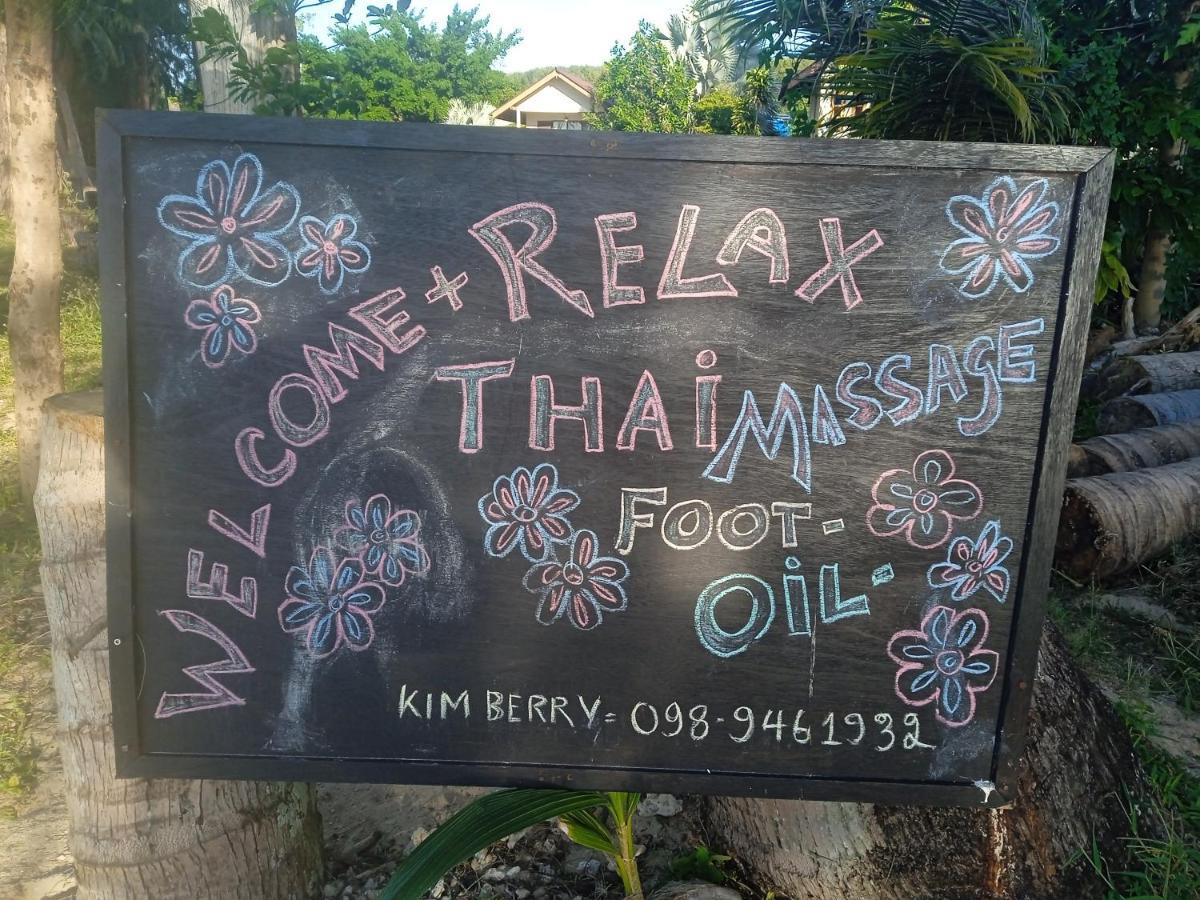 WELCOME + RELAX
THAi MASSAGE
FOOT-
OiL-
KIM BERRY= 098-9461932